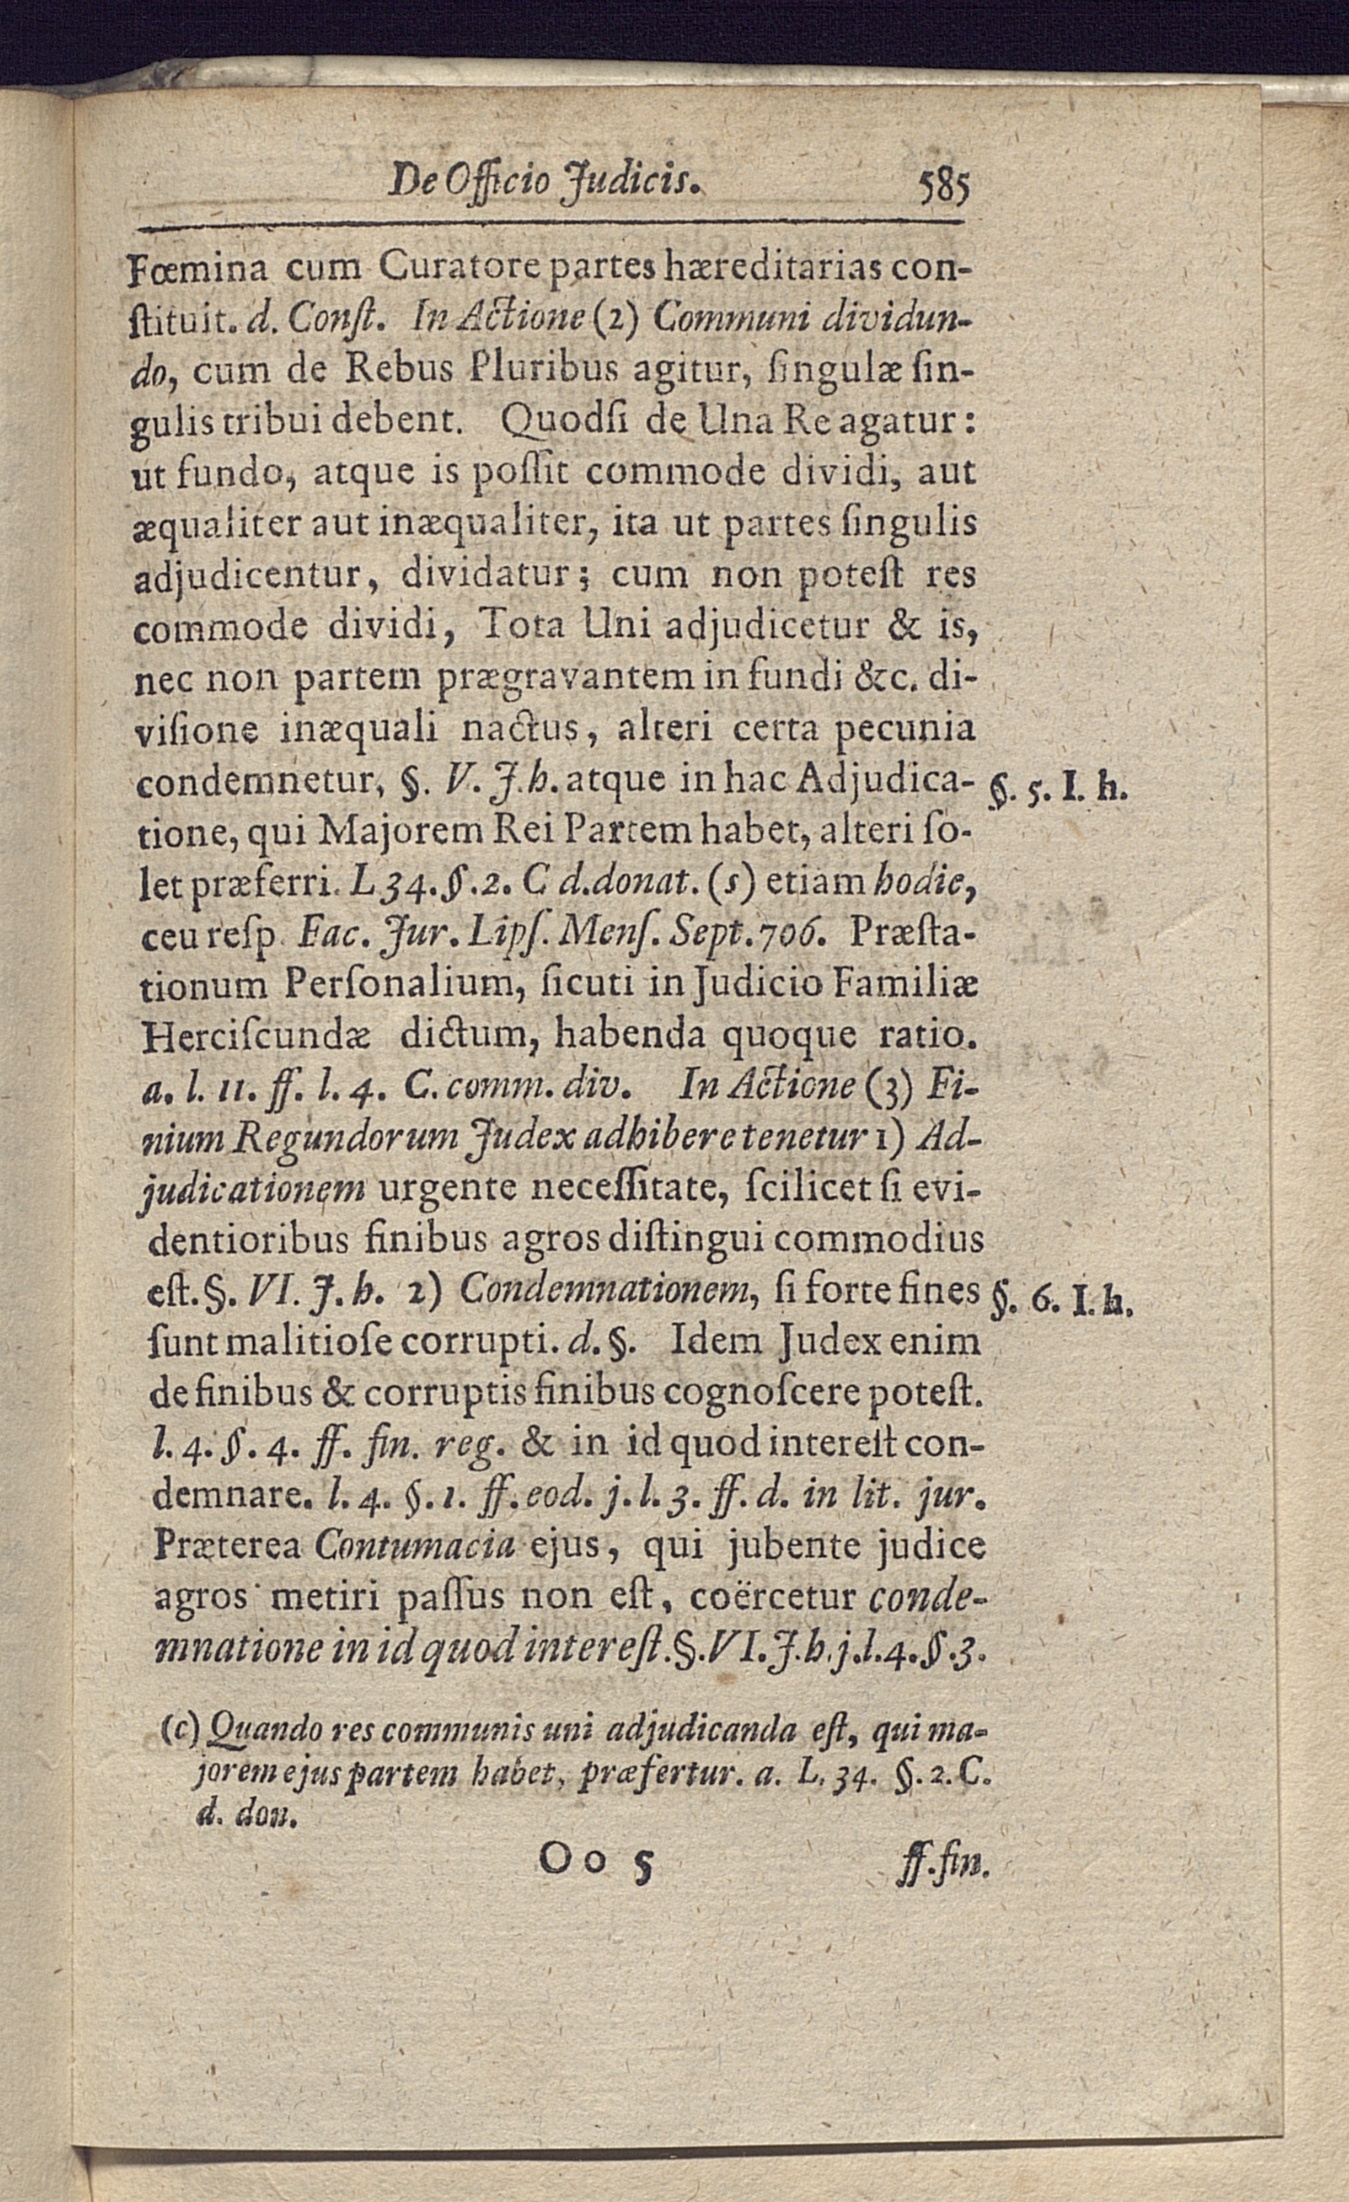 De Officio Judicis. 585
Fœmina cum Curatore partes hæreditarias con-
ſtituit. d. Conſt. In Actione (2) Communi dividun-
do, cum de Rebus Pluribus agitur, ſingulæ ſin-
gulis tribui debent. Quodſi de Una Re agatur:
ut fundo, atque is poſſit commode dividi, aut
æqualiter aut inæqualiter, ita ut partes ſingulis
adjudicentur, dividatur; cum non poteſt res
commode dividi, Tota Uni adjudicetur & is,
nec non partem prægravantem in fundi &c. di-
viſione inæquali nactus, alteri certa pecunia
condemnetur, §. V. J. h. atque in hac Adjudica- §. 5. I. h.
tione, qui Majorem Rei Partem habet, alteri ſo-
let præferri. L 34. §. 2. C d. donat. (s) etiam hodie,
ceu reſp. Fac. Jur. Lipſ. Menſ. Sept. 706. Præſta-
tionum Perſonalium, ſicuti in Judicio Familiæ
Herciſcundæ dictum, habenda quoque ratio.
a. l. 11. ff. l. 4. C. comm. div. In Actione (3) Fi-
nium Regundorum Judex adhibere tenetur 1) Ad-
judicationem urgente neceſſitate, ſcilicet ſi evi-
dentioribus finibus agros diſtingui commodius
eſt. §. VI. J. h. 2) Condemnationem, ſi forte fines §. 6. I. h.
ſunt malitioſe corrupti. d. §. Idem Judex enim
de finibus & corruptis finibus cognoſcere poteſt.
l. 4. §. 4. ff. fin. reg. & in id quod intereſt con-
demnare. l. 4. §. 1. ff. eod. j. l. 3. ff. d. in lit. jur.
Præterea Contumacia ejus, qui jubente judice
agros metiri paſſus non eſt, coërcetur conde-
mnatione in id quod intereſt. §. VI. J. h. j. l. 4. §. 3.
(c) Quando res communis uni adjudicanda eſt, qui ma-
jorem ejus partem habet, præfertur. a. L. 34. §. 2. C.
d. don.
Oo 5 ff. fin.